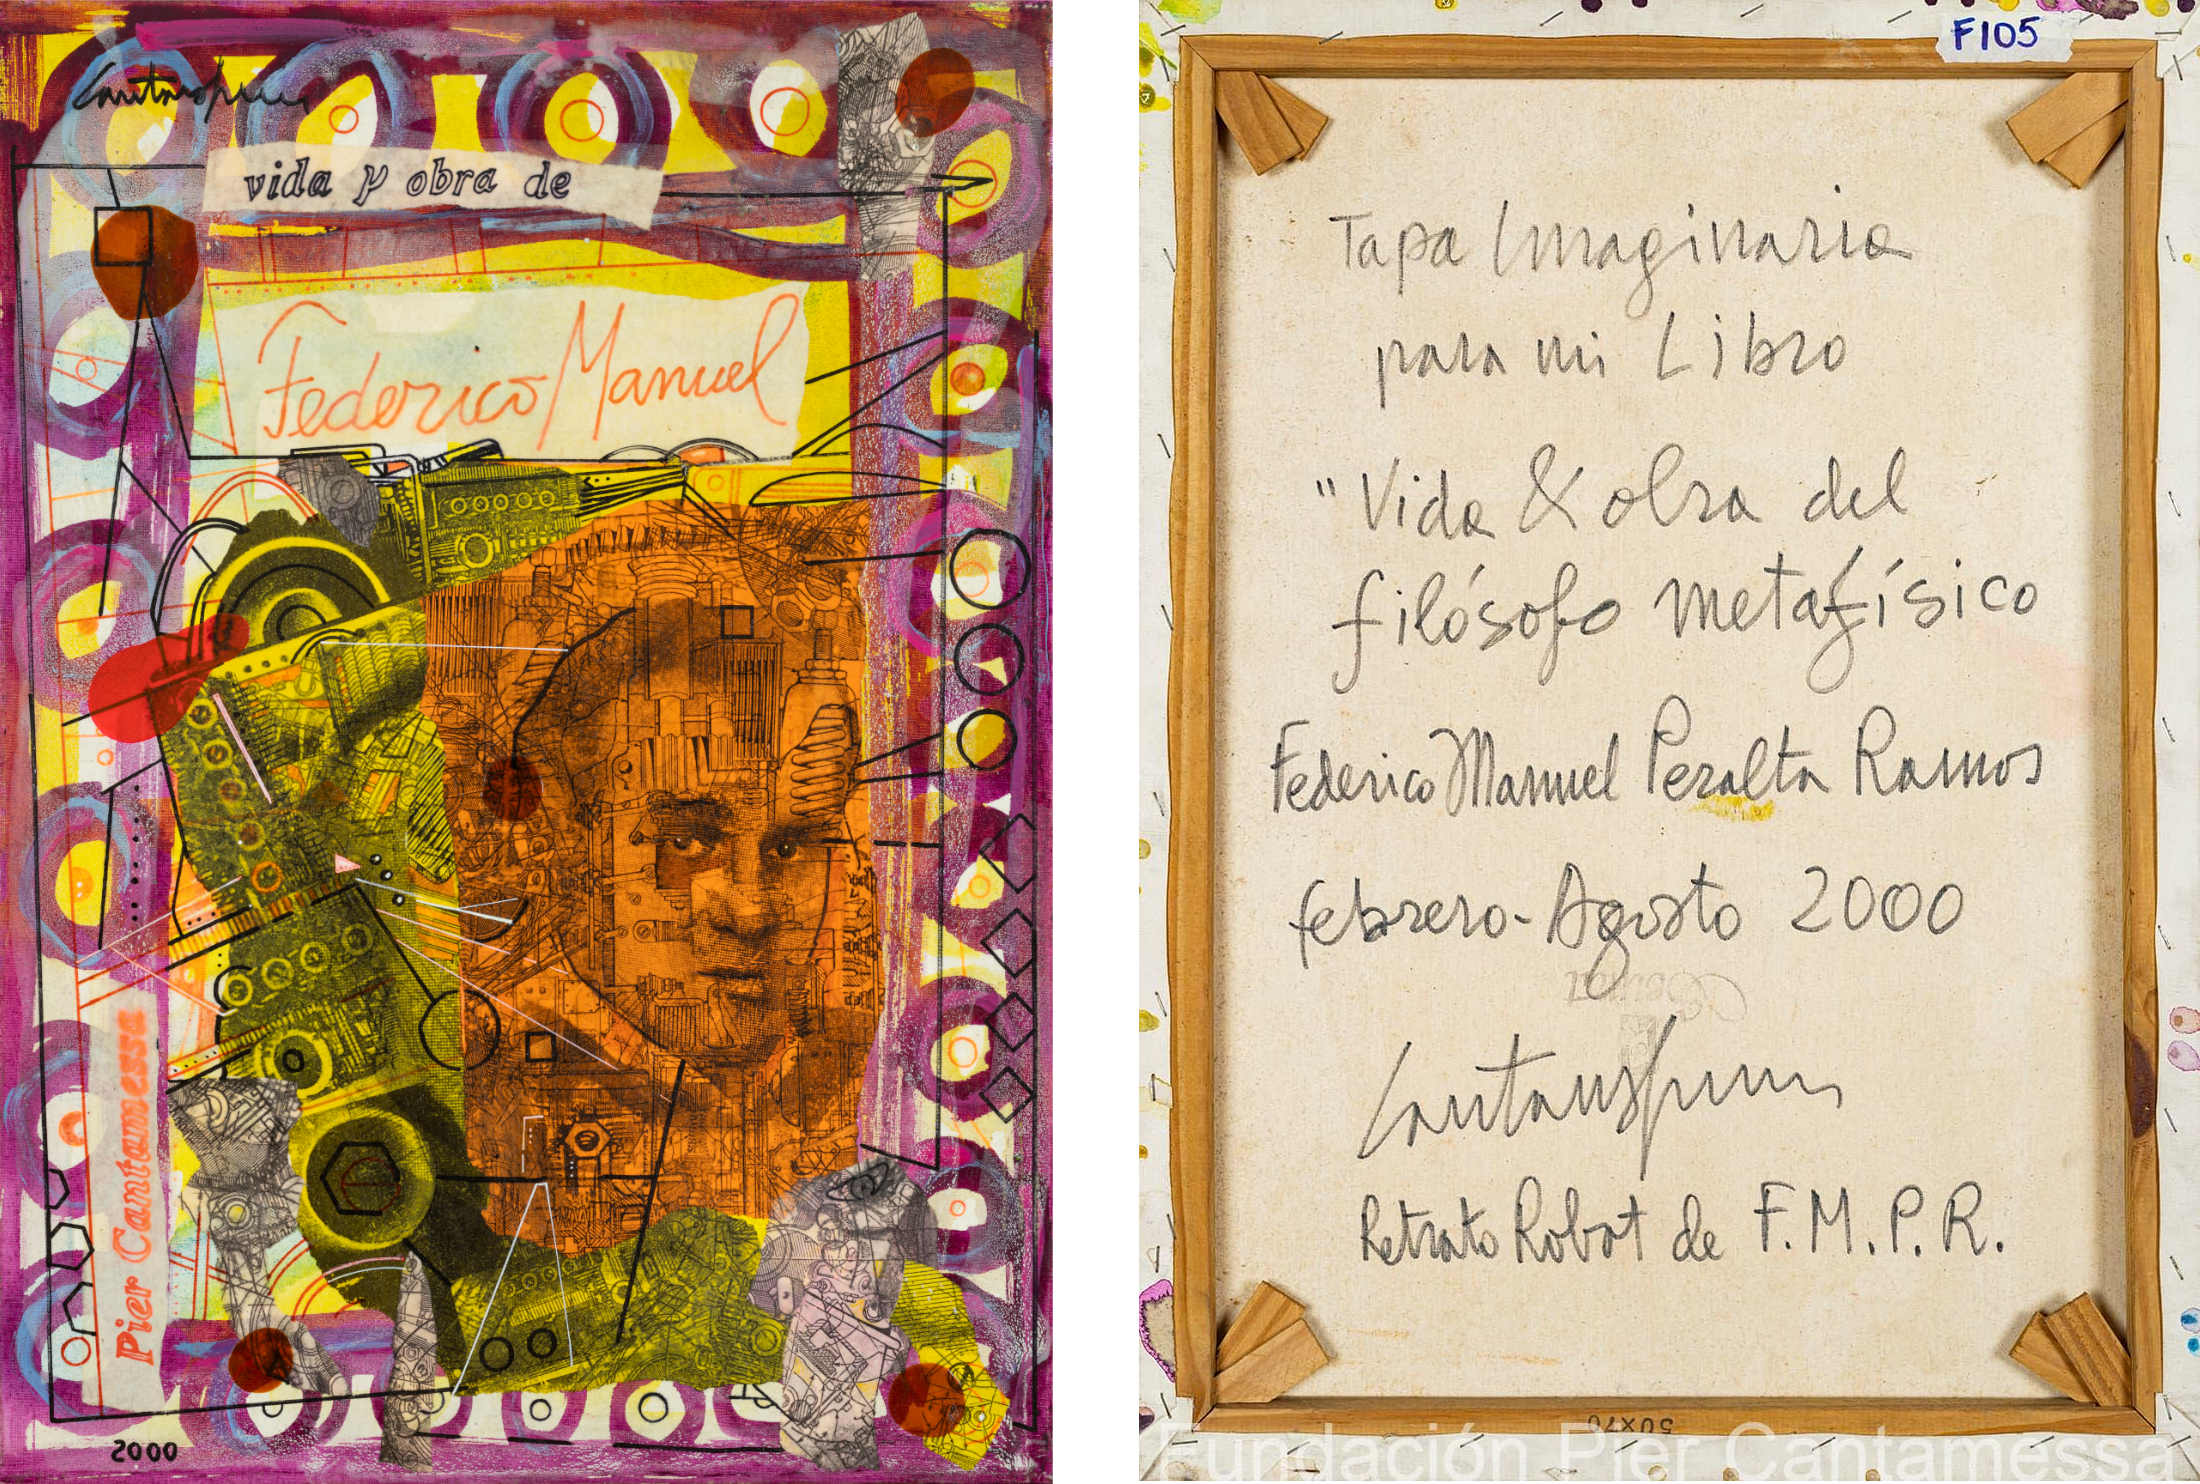 Cantamessa
vida y obra de
Federico Manuel
Pier Cantamessa
2000
F105
Tapa Imaginaria
para mi Libro
"Vida & obra del
filósofo metafísico
Federico Manuel Peralta Ramos
febrero-Agosto 2000
Cantamessa
Retrato Robot de F.M.P.R.
50x70
Fundación Pier Cantamessa